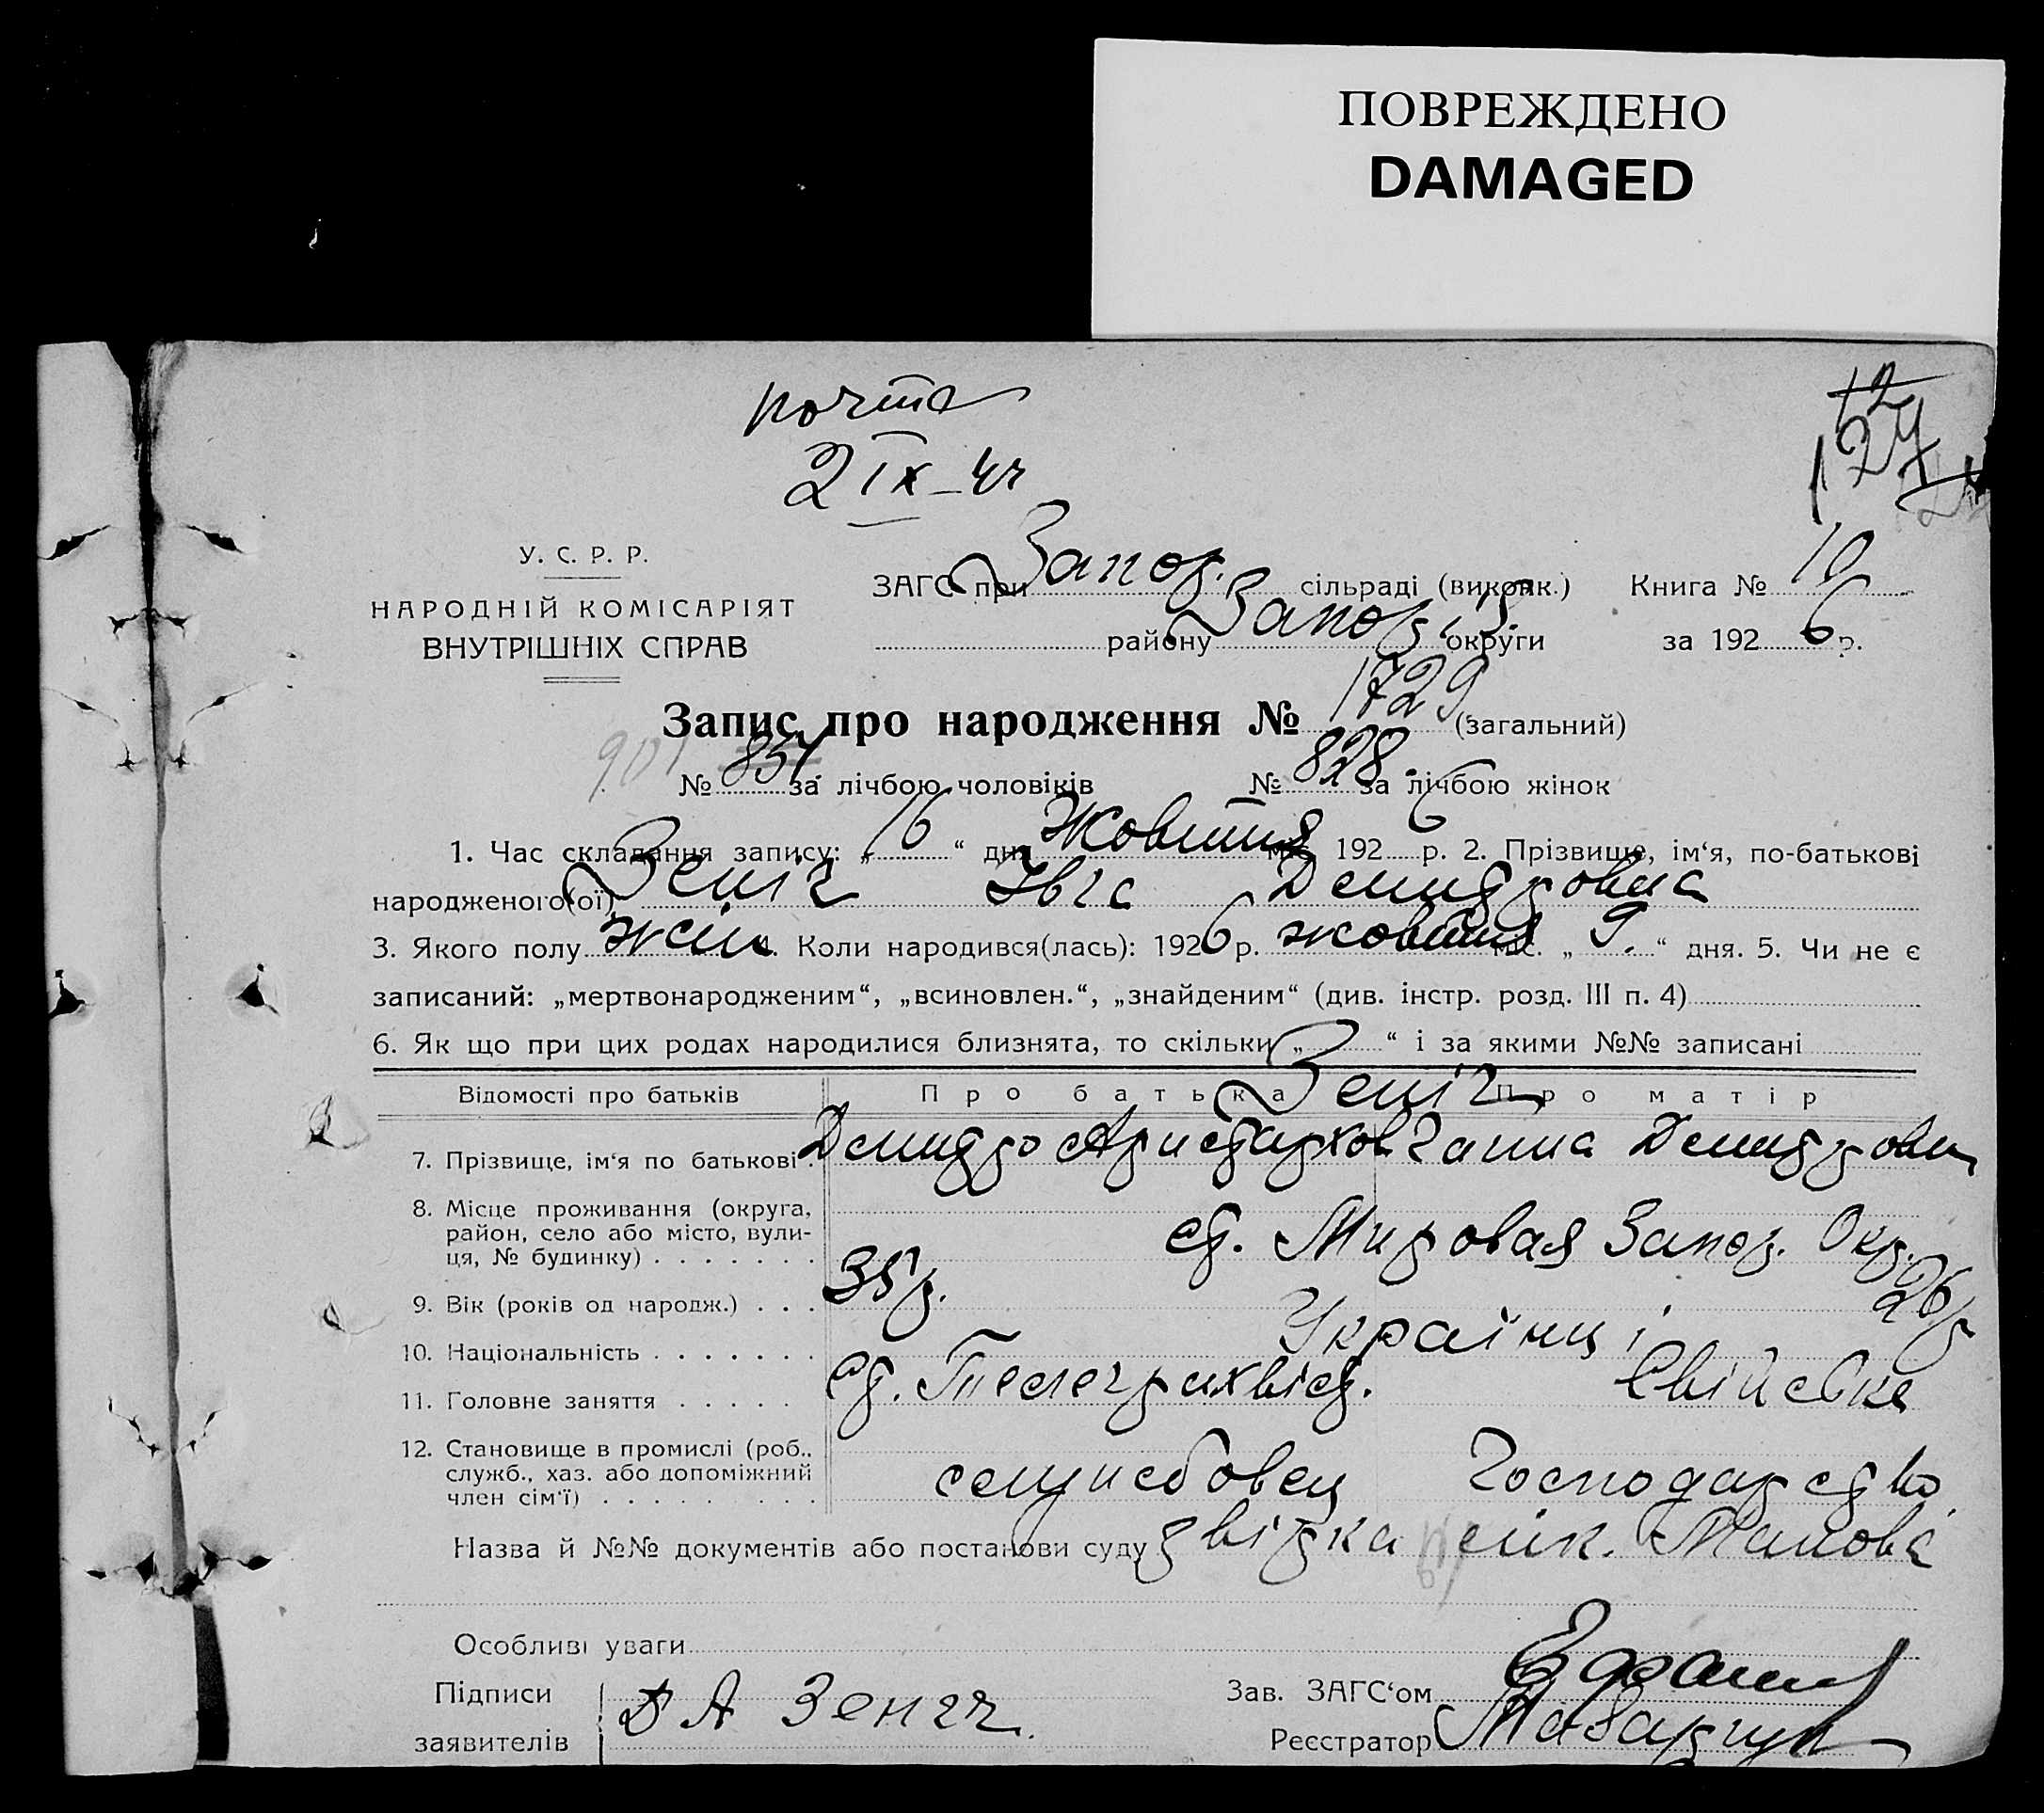 ПОВРЕЖДЕНО
DAMAGED
почта
2 IX–44
12
127
У. С. Р. Р.
НАРОДНІЙ КОМІСАРІЯТ
ВНУТРІШНІХ СПРАВ
ЗАГС при Запор. сільраді (виконк.) Книга № 10
району Запор. округи за 1926 р.
Запис про народження № 1729 (загальний)
901 № 851 за лічбою чоловіків № 828 за лічбою жінок
1. Час складання запису: „16“ дня Жовтня міс. 1926 р. 2. Прізвище, ім‘я, по-батькові
народженого(ої) Зеніч Івга Демидовна
3. Якого полу жін. 4. Коли народився(лась): 1926 р. жовтня міс. „9.“ дня. 5. Чи не є
записаний: „мертвонародженим“, „всиновлен.“, „знайденим“ (див. інстр. розд. III п. 4)
6. Як що при цих родах народилися близнята, то скільки „ “ і за якими №№ записані
Відомості про батьків Про батька Про матір
Зеніч
7. Прізвище, ім‘я по батькові Демидо Аристархов Ганна
8. Місце проживання (округа,
район, село або місто, вули-
ця, № будинку) ст. Мировая Запор. Окр.
9. Вік (років од народж.) 35 р. 26 р
10. Національність Українці
11. Головне заняття ст. Свійське
12. Становище в промислі (роб.,
служб., хаз. або допоміжний
член сім‘ї) служебовец Господарство
Назва й №№ документів або постанови суду
Особливі уваги
Підписи
заявителів Д А Зенич
Зав. ЗАГС‘ом
Реєстратор